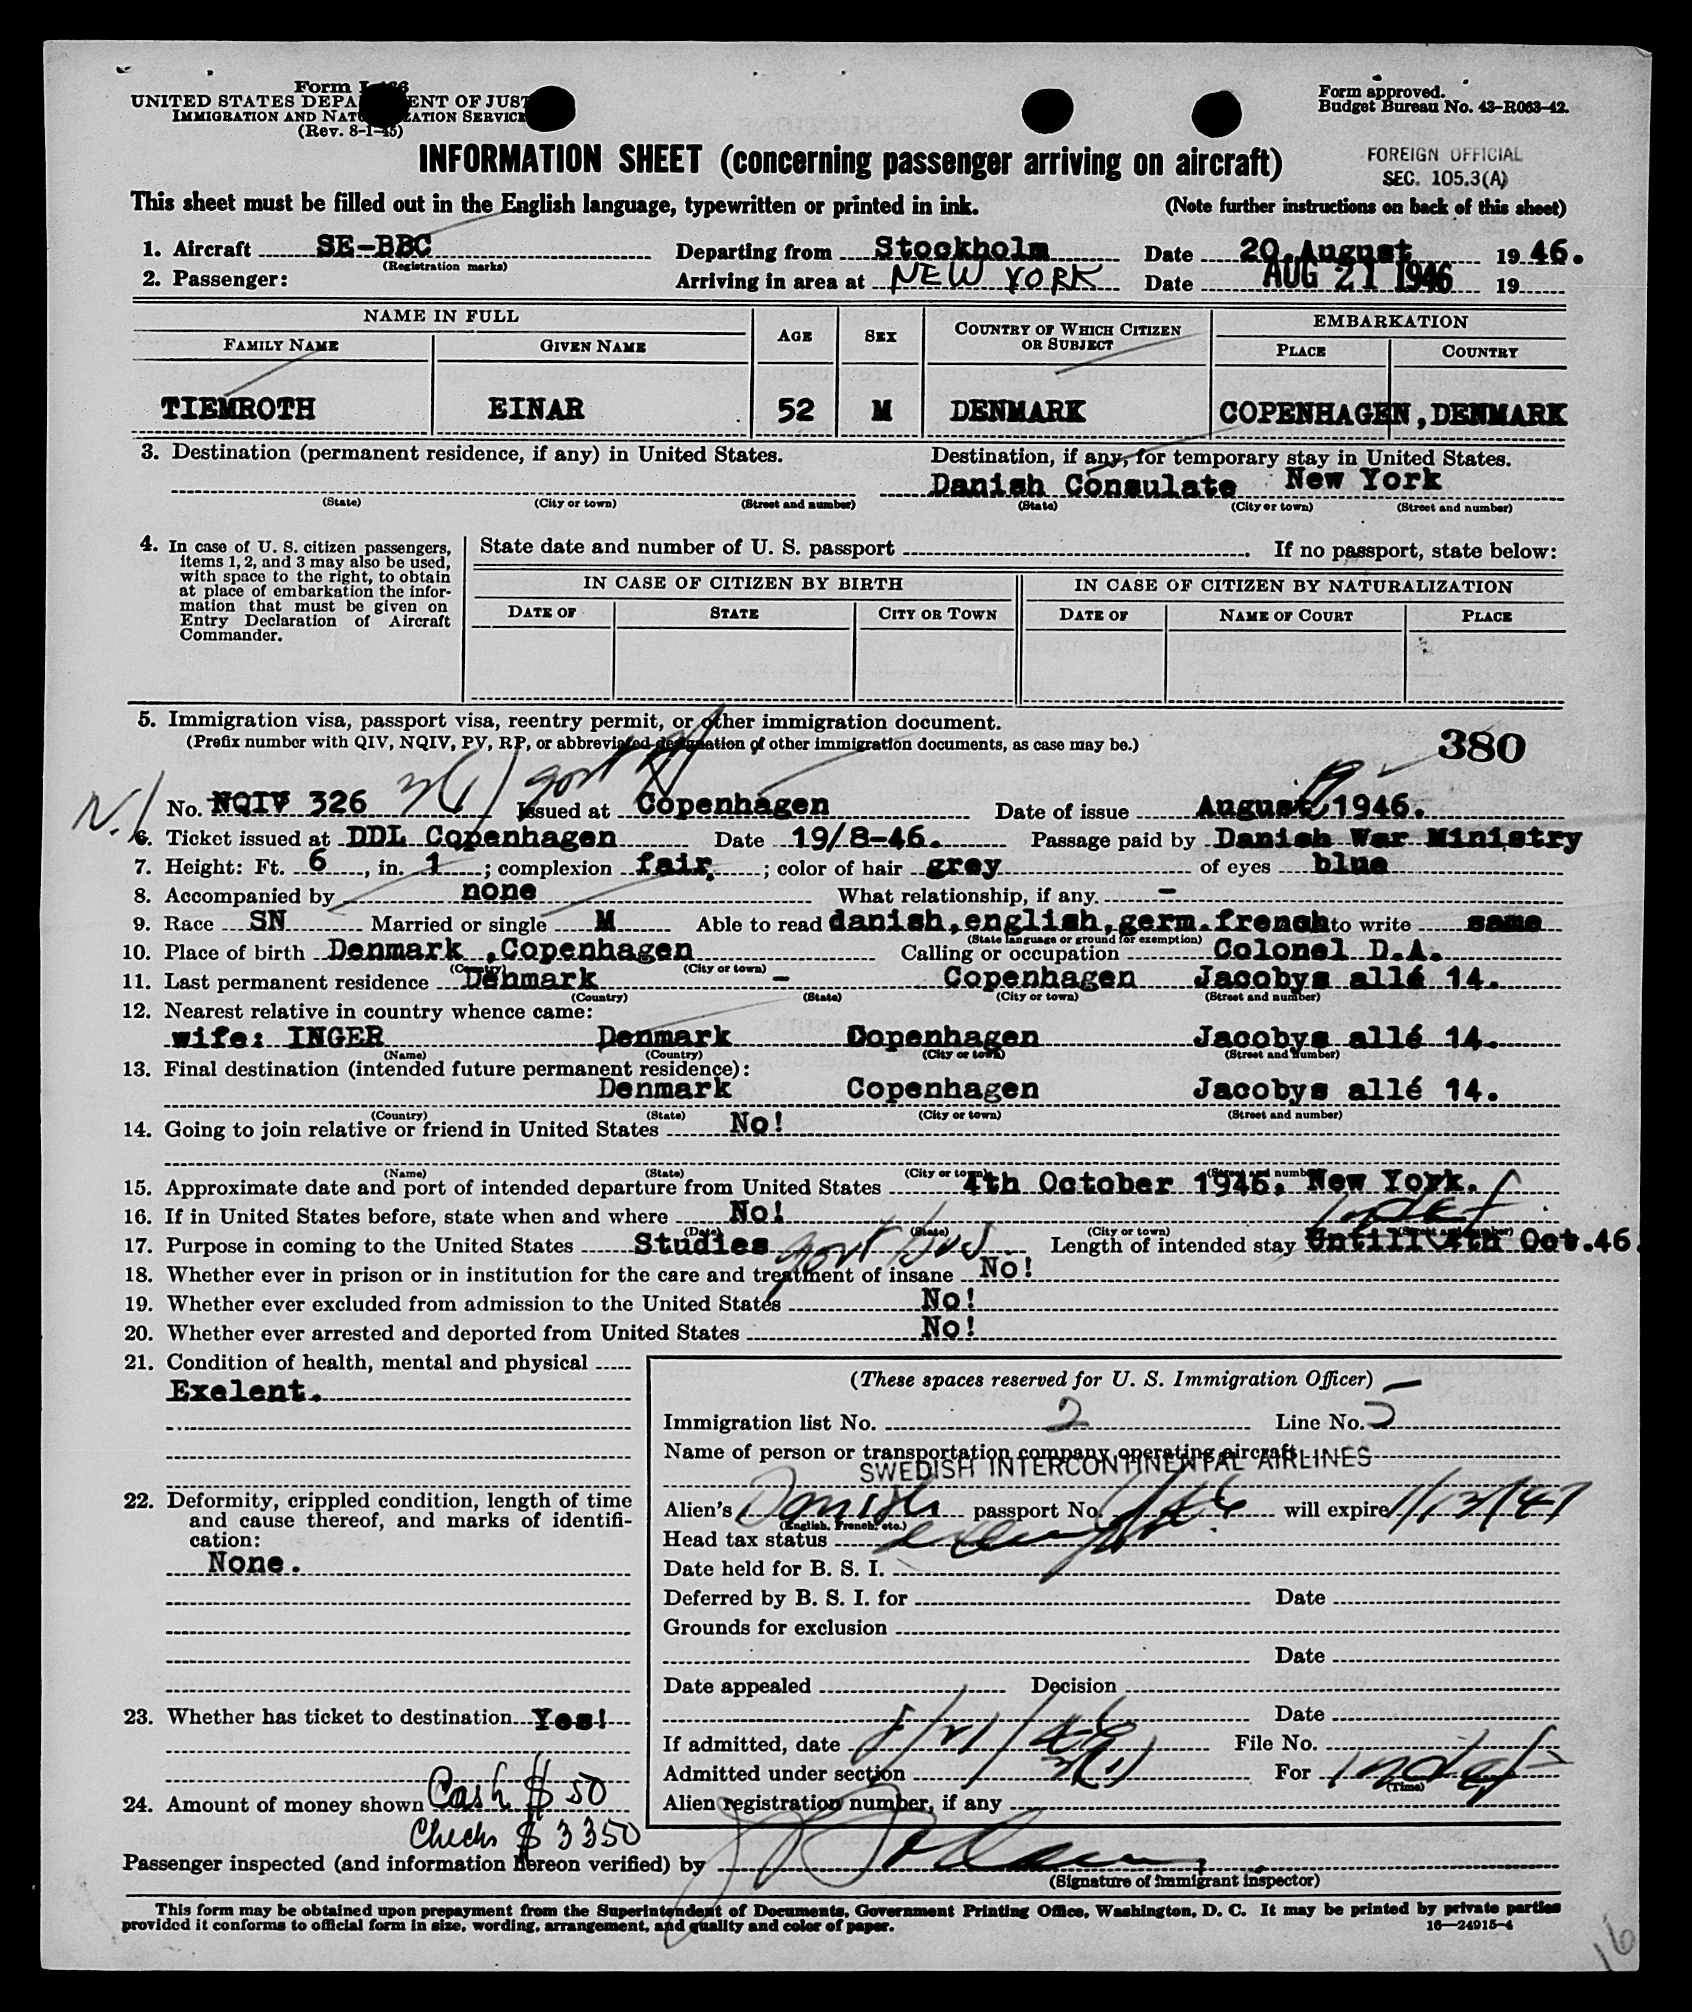 Form I-466
UNITED STATES DEPARTMENT OF JUSTICE
IMMIGRATION AND NATURALIZATION SERVICE
(Rev. 8-1-45)
Form approved.
Budget Bureau No. 43-R063-42.
INFORMATION SHEET (concerning passenger arriving on aircraft)
FOREIGN OFFICIAL
SEC. 105.3(A)
This sheet must be filled out in the English language, typewritten or printed in ink. (Note further instructions on back of this sheet)
1. Aircraft SE-BBC Departing from Stockholm Date 20. August 19 46.
(Registration marks)
2. Passenger: Arriving in area at NEW YORK Date AUG 21 1946 19
NAME IN FULL AGE SEX COUNTRY OF WHICH CITIZEN OR SUBJECT EMBARKATION
FAMILY NAME GIVEN NAME PLACE COUNTRY
TIEMROTH EINAR 52 M DENMARK COPENHAGEN, DENMARK
3. Destination (permanent residence, if any) in United States. Destination, if any, for temporary stay in United States.
Danish Consulate New York
(State) (City or town) (Street and number) (State) (City or town) (Street and number)
4. In case of U. S. citizen passengers, items 1, 2, and 3 may also be used, with space to the right, to obtain at place of embarkation the information that must be given on Entry Declaration of Aircraft Commander.
State date and number of U. S. passport . If no passport, state below:
IN CASE OF CITIZEN BY BIRTH IN CASE OF CITIZEN BY NATURALIZATION
DATE OF STATE CITY OR TOWN DATE OF NAME OF COURT PLACE
5. Immigration visa, passport visa, reentry permit, or other immigration document.
(Prefix number with QIV, NQIV, PV, RP, or abbreviated designation of other immigration documents, as case may be.)
380
No. NQIV 326 3(1) govt off Issued at Copenhagen Date of issue August 1946.
6. Ticket issued at DDL Copenhagen Date 19/8-46. Passage paid by Danish War Ministry
7. Height: Ft. 6, in. 1; complexion fair.; color of hair grey of eyes blue
8. Accompanied by none What relationship, if any. -
9. Race SN Married or single M Able to read danish,english,germ.french to write same
(State language or ground for exemption)
10. Place of birth Denmark ,Copenhagen Calling or occupation Colonel D.A.
(Country) (City or town)
11. Last permanent residence Denmark - Copenhagen Jacobys allé 14.
(Country) (State) (City or town) (Street and number)
12. Nearest relative in country whence came:
wife: INGER Denmark Copenhagen Jacobys allé 14.
(Name) (Country) (City or town) (Street and number)
13. Final destination (intended future permanent residence):
Denmark Copenhagen Jacobys allé 14.
(Country) (State) (City or town) (Street and number)
14. Going to join relative or friend in United States No!
(Name) (State) (City or town) (Street and number)
15. Approximate date and port of intended departure from United States 4th October 1946. New York.
16. If in United States before, state when and where No!
(Date) (State) (City or town) (Street and number)
17. Purpose in coming to the United States Studies govt bus Length of intended stay Untill 4th Oct.46.
18. Whether ever in prison or in institution for the care and treatment of insane No!
19. Whether ever excluded from admission to the United States No!
20. Whether ever arrested and deported from United States No!
21. Condition of health, mental and physical
Exelent.
22. Deformity, crippled condition, length of time and cause thereof, and marks of identification:
None.
23. Whether has ticket to destination Yes!
24. Amount of money shown Cash $ 50
Checks $ 3350
(These spaces reserved for U. S. Immigration Officer)
Immigration list No. 2 Line No. 5
Name of person or transportation company operating aircraft
SWEDISH INTERCONTINENTAL AIRLINES
Alien's Danish passport No. will expire 1/13/47
(English, French, etc.)
Head tax status exempt
Date held for B. S. I.
Deferred by B. S. I. for Date
Grounds for exclusion
Date
Date appealed Decision
Date
If admitted, date 8/21/46 File No.
Admitted under section 3(1) For indef
(Time)
Alien registration number, if any
Passenger inspected (and information hereon verified) by
(Signature of immigrant inspector)
This form may be obtained upon prepayment from the Superintendent of Documents, Government Printing Office, Washington, D. C. It may be printed by private parties
provided it conforms to official form in size, wording, arrangement, and quality and color of paper. 16—24915-4
16